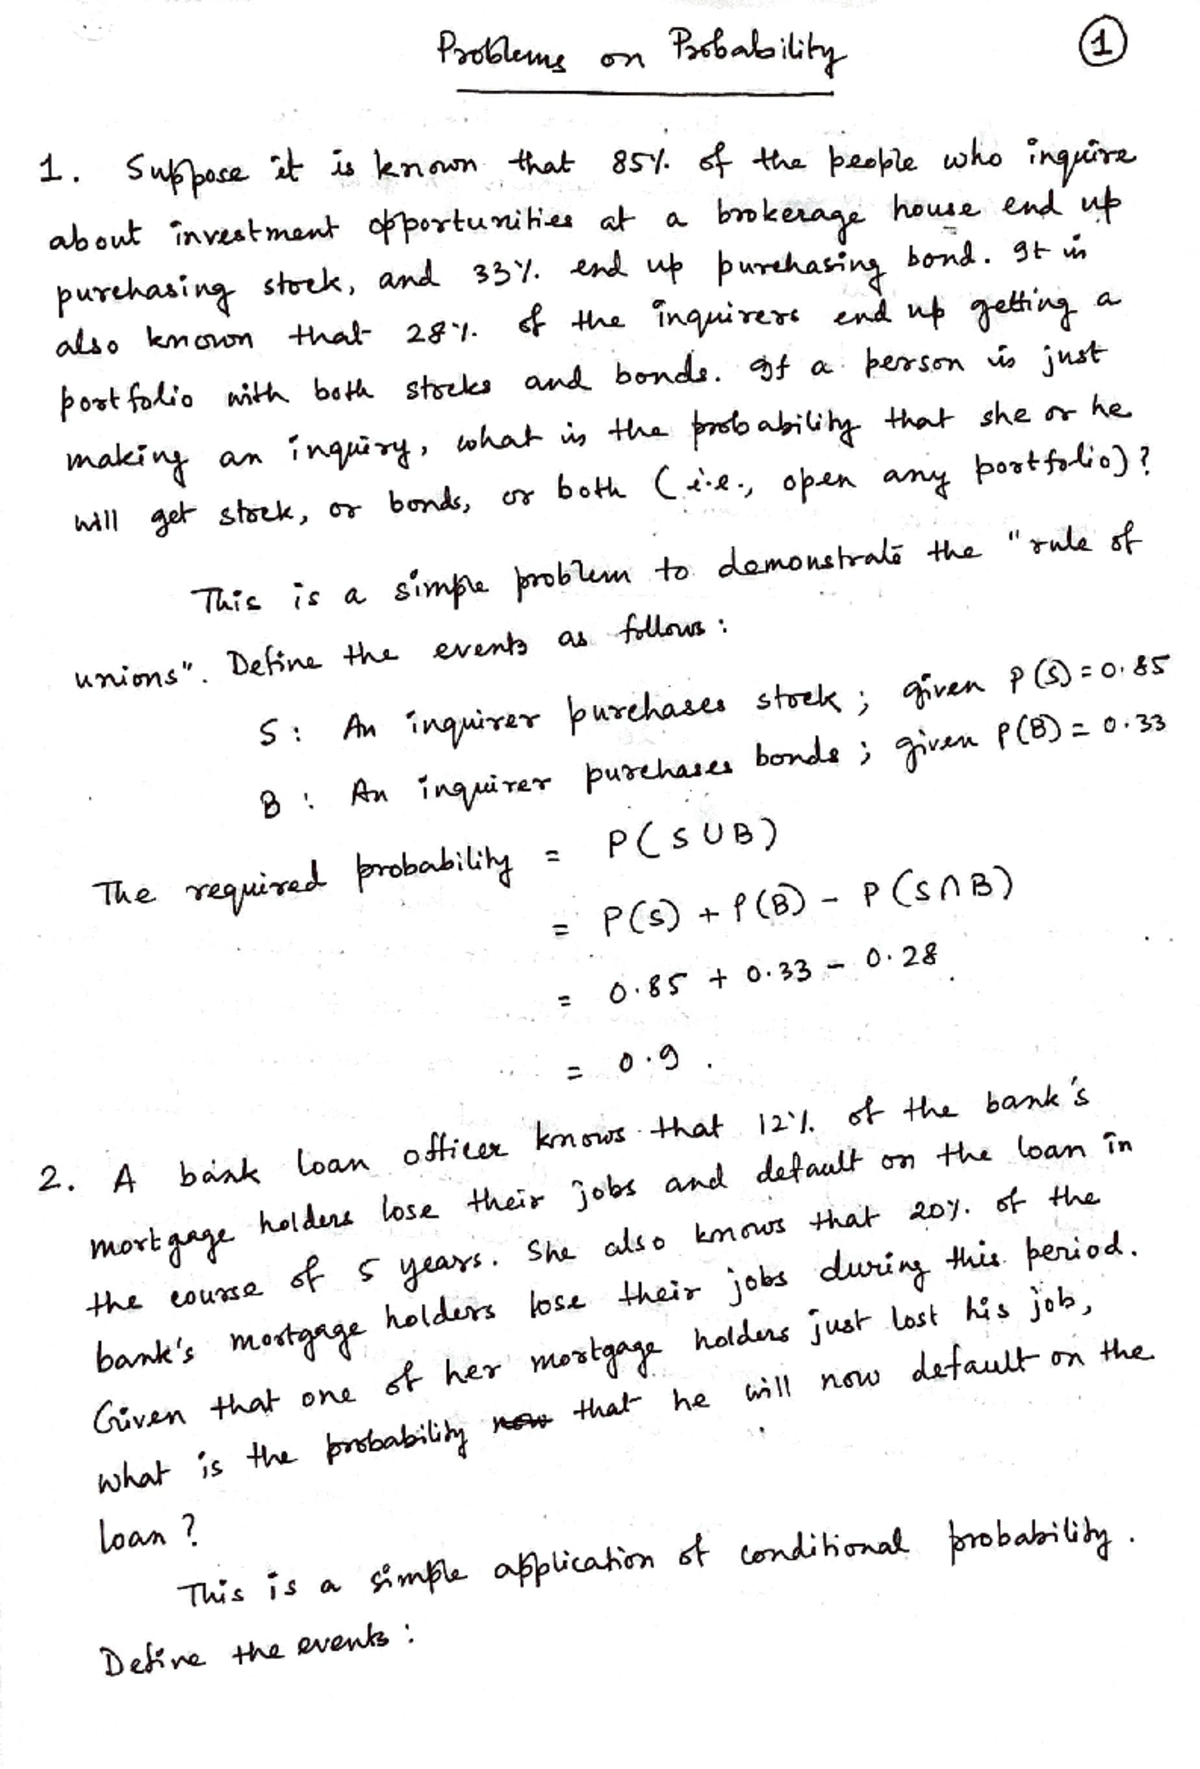 Problems on Probability
1
1. Suppose it is known that 85% of the people who inquire
about investment opportunities at a brokerage house end up
purchasing stock, and 33% end up purchasing bond. It is
also known that 28% of the inquirers end up getting a
portfolio with both stocks and bonds. If a person is just
making an inquiry, what is the probability that she or he
will get stock, or bonds, or both (i.e., open any portfolio)?
This is a simple problem to demonstrate the "rule of
unions". Define the events as follows:
S: An inquirer purchases stock; given P(S) = 0.85
B: An inquirer purchases bonds; given P(B) = 0.33
The required probability = P(S∪B)
= P(S) + P(B) - P(S∩B)
= 0.85 + 0.33 - 0.28
= 0.9.
2. A bank loan officer knows that 12% of the bank's
mortgage holders lose their jobs and default on the loan in
the course of 5 years. She also knows that 20% of the
bank's mortgage holders lose their jobs during this period.
Given that one of her mortgage holders just lost his job,
what is the probability now that he will now default on the
loan?
This is a simple application of conditional probability.
Define the events: